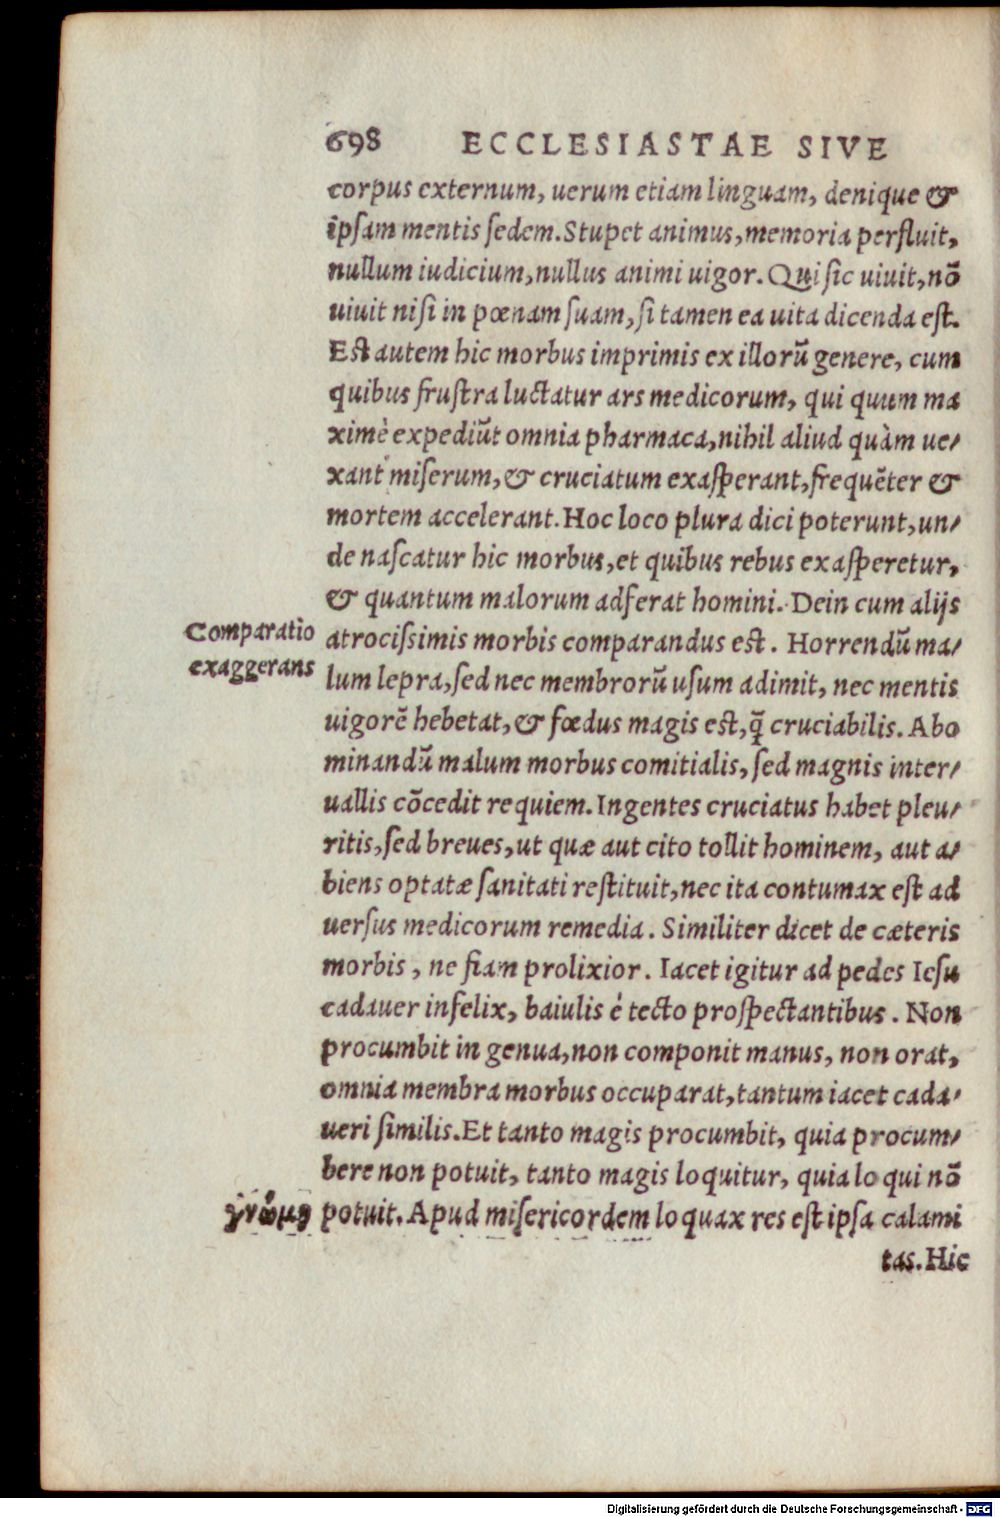 698 ECCLESIASTAE SIVE
corpus externum, uerum etiam linguam, denique &
ipsam mentis sedem. Stupet animus, memoria perfluit,
nullum iudicium, nullus animi uigor. Qui sic uiuit, nō
uiuit nisi in pœnam suam, si tamen ea uita dicenda est.
Est autem hic morbus imprimis ex illorū genere, cum
quibus frustra luctatur ars medicorum, qui quum ma
ximè expediūt omnia pharmaca, nihil aliud quàm ue/
xant miserum, & cruciatum exasperant, frequēter &
mortem accelerant. Hoc loco plura dici poterunt, un/
de nascatur hic morbus, et quibus rebus exasperetur,
& quantum malorum adferat homini. Dein cum alijs
Comparatio
exaggerans
atrocissimis morbis comparandus est. Horrendū ma/
lum lepra, sed nec membrorū usum adimit, nec mentis
uigorē hebetat, & fœdus magis est, q̄ cruciabilis. Abo
minandū malum morbus comitialis, sed magnis inter/
uallis cōcedit requiem. Ingentes cruciatus habet pleu/
ritis, sed breues, ut quæ aut cito tollit hominem, aut a/
biens optatæ sanitati restituit, nec ita contumax est ad
uersus medicorum remedia. Similiter dicet de cæteris
morbis, ne fiam prolixior. Iacet igitur ad pedes Iesu
cadauer infelix, baiulis è tecto prospectantibus. Non
procumbit in genua, non componit manus, non orat,
omnia membra morbus occuparat, tantum iacet cada/
ueri similis. Et tanto magis procumbit, quia procum/
bere non potuit, tanto magis loquitur, quia loqui nō
γνώμη
potuit. Apud misericordem loquax res est ipsa calami
tas. Hic
Digitalisierung gefördert durch die Deutsche Forschungsgemeinschaft - DFG